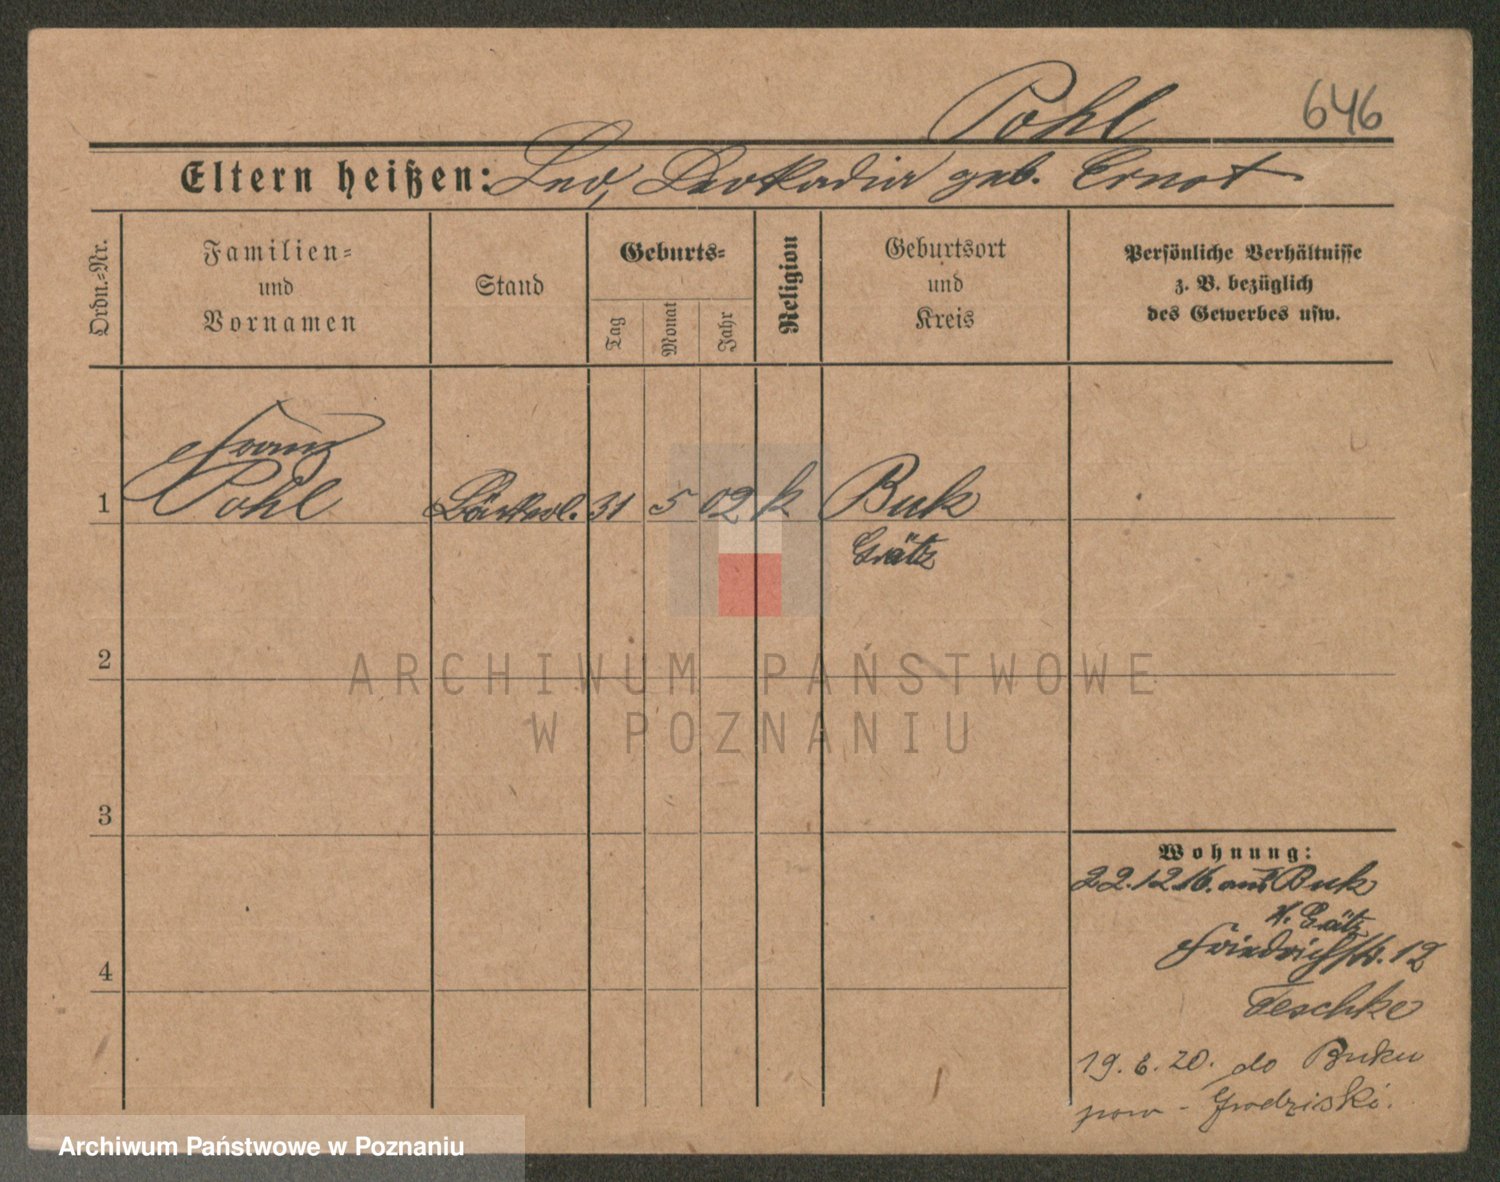 Pohl
646
Eltern heißen: Leo, Leokadia geb. Ernst
Ordn.-Nr.
Familien-
und
Vornamen
Stand
Geburts-
Tag
Monat
Jahr
Religion
Geburtsort
und
Kreis
Persönliche Verhältnisse
z. B. bezüglich
des Gewerbes usw.
Franz
1 Pohl Bäckerl. 31 5 02 k Buk
Grätz
2
ARCHIWUM PAŃSTWOWE
W POZNANIU
3
Wohnung:
22.12.16. aus Buk
K. Grätz
Friedrichstr. 12
4
Teschke
19.6.20. do Buku
pow - Grodziski.
Archiwum Państwowe w Poznaniu